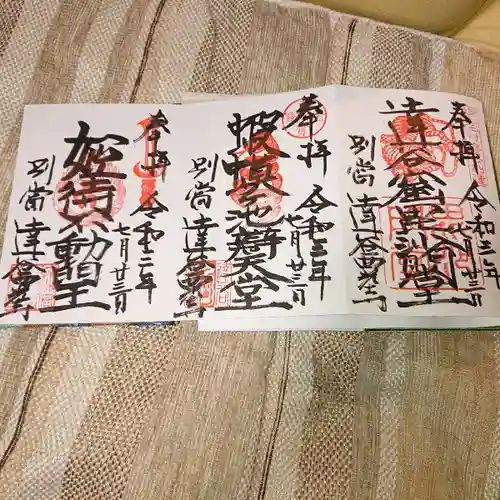 奉拝 令和二年
七月廿三日
達谷窟毘沙門堂
別當 達谷西光寺
奉拝 令和二年
七月廿三日
蝦蟆ヶ池辯天堂
別當 達谷西光寺
奉拝 令和二年
七月廿三日
姫待不動堂
別當 達谷西光寺